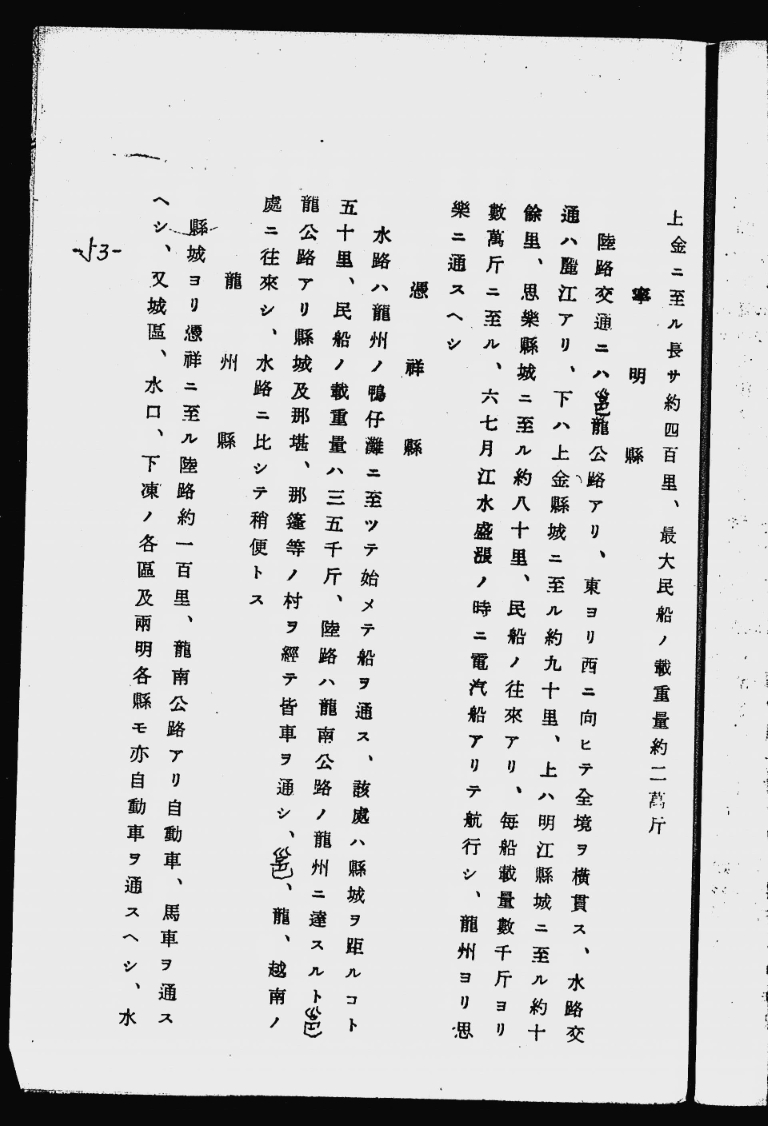 上金ニ至ル長サ約四百里、最大民船ノ載重量約二萬斤
寧明縣
陸路交通ニハ邕龍公路アリ、東ヨリ西ニ向ヒテ全境ヲ橫貫ス、水路交
通ハ麗江アリ、下ハ上金縣城ニ至ル約九十里、上ハ明江縣城ニ至ル約十
餘里、思樂縣城ニ至ル約八十里、民船ノ往來アリ、每船載量數千斤ヨリ
數萬斤ニ至ル、六七月江水盛漲ノ時ニ電汽船アリテ航行シ、龍州ヨリ思
樂ニ通スヘシ
憑祥縣
水路ハ龍州ノ鴨仔灘ニ至ツテ始メテ船ヲ通ス、該處ハ縣城ヲ距ルコト
五十里、民船ノ載重量ハ三五千斤、陸路ハ龍南公路ノ龍州ニ達スルト邕
龍公路アリ縣城及那堪、那篷等ノ村ヲ經テ皆車ヲ通シ、邕、龍、越南ノ
處ニ往來シ、水路ニ比シテ稍便トス
龍州縣
縣城ヨリ憑祥ニ至ル陸路約一百里、龍南公路アリ自動車、馬車ヲ通ス
ヘシ、又城區、水口、下凍ノ各區及兩明各縣モ亦自動車ヲ通スヘシ、水
-53-